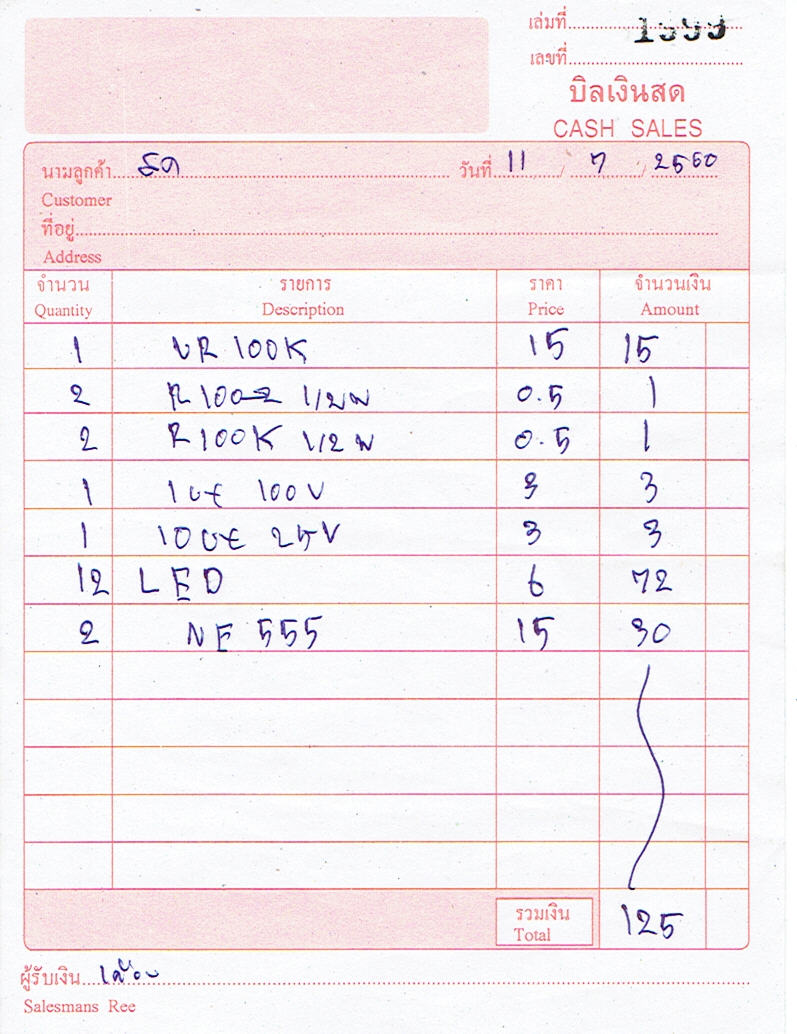 เล่มที่
เลขที่
บิลเงินสด
CASH SALES
นามลูกค้า สด วันที่ 11 / 7 / 2560
Customer
ที่อยู่
Address
จำนวน รายการ ราคา จำนวนเงิน
Quantity Description Price Amount
1 VR 100K 15 15
2 R 100Ω 1/2W 0.5 1
2 R 100K 1/2W 0.5 1
1 1uF 100V 3 3
1 10uF 25V 3 3
12 LED 6 72
2 NE 555 15 30
รวมเงิน 125
Total
ผู้รับเงิน
Salesmans Ree